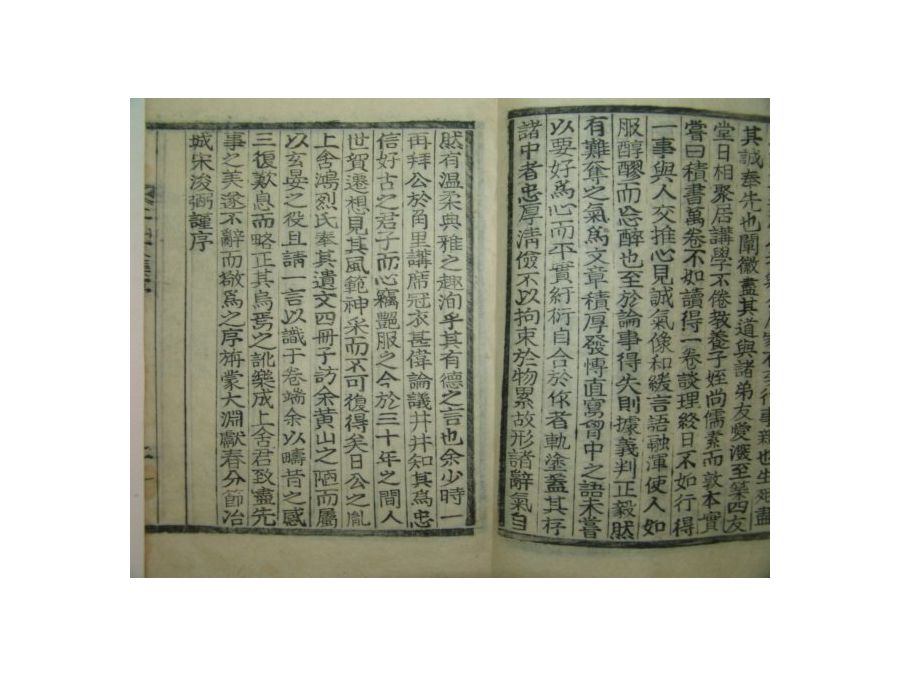 行事親也生死盡
其誠奉先也闡徽盡其道與諸弟友愛潑至築四友
堂日相聚居講學不倦教養子姪尚儒素而敦本實
嘗曰積書萬卷不如讀得一卷談理終日不如行得
一事與人交推心見誠氣像和緩言語融渾使人如
服醇醪而忘醉也至於論事得失則據義判正毅然
有難奪之氣爲文章積厚發愽直寫胷中之語未嘗
以要好爲心而平實紆衍自合於作者軌塗盖其存
諸中者忠厚淸儉不以拘束於物累故形諸辭氣自
然有溫柔典雅之趣洵乎其有德之言也余少時一
再拜公於角里講席冠衣甚偉論議井井知其爲忠
信好古之君子而心竊艷服之今於三十年之間人
世貿遷想見其風範神采而不可復得矣日公之胤
上舍鴻烈氏奉其遺文四冊子訪余黃山之陋而屬
以玄晏之役且請一言以識于卷端余以疇昔之感
三復歎息而略正其烏焉之訛樂成上舍君致盡先
事之美遂不辭而敬爲之序旃蒙大淵獻春分節冶
城宋浚弼謹序